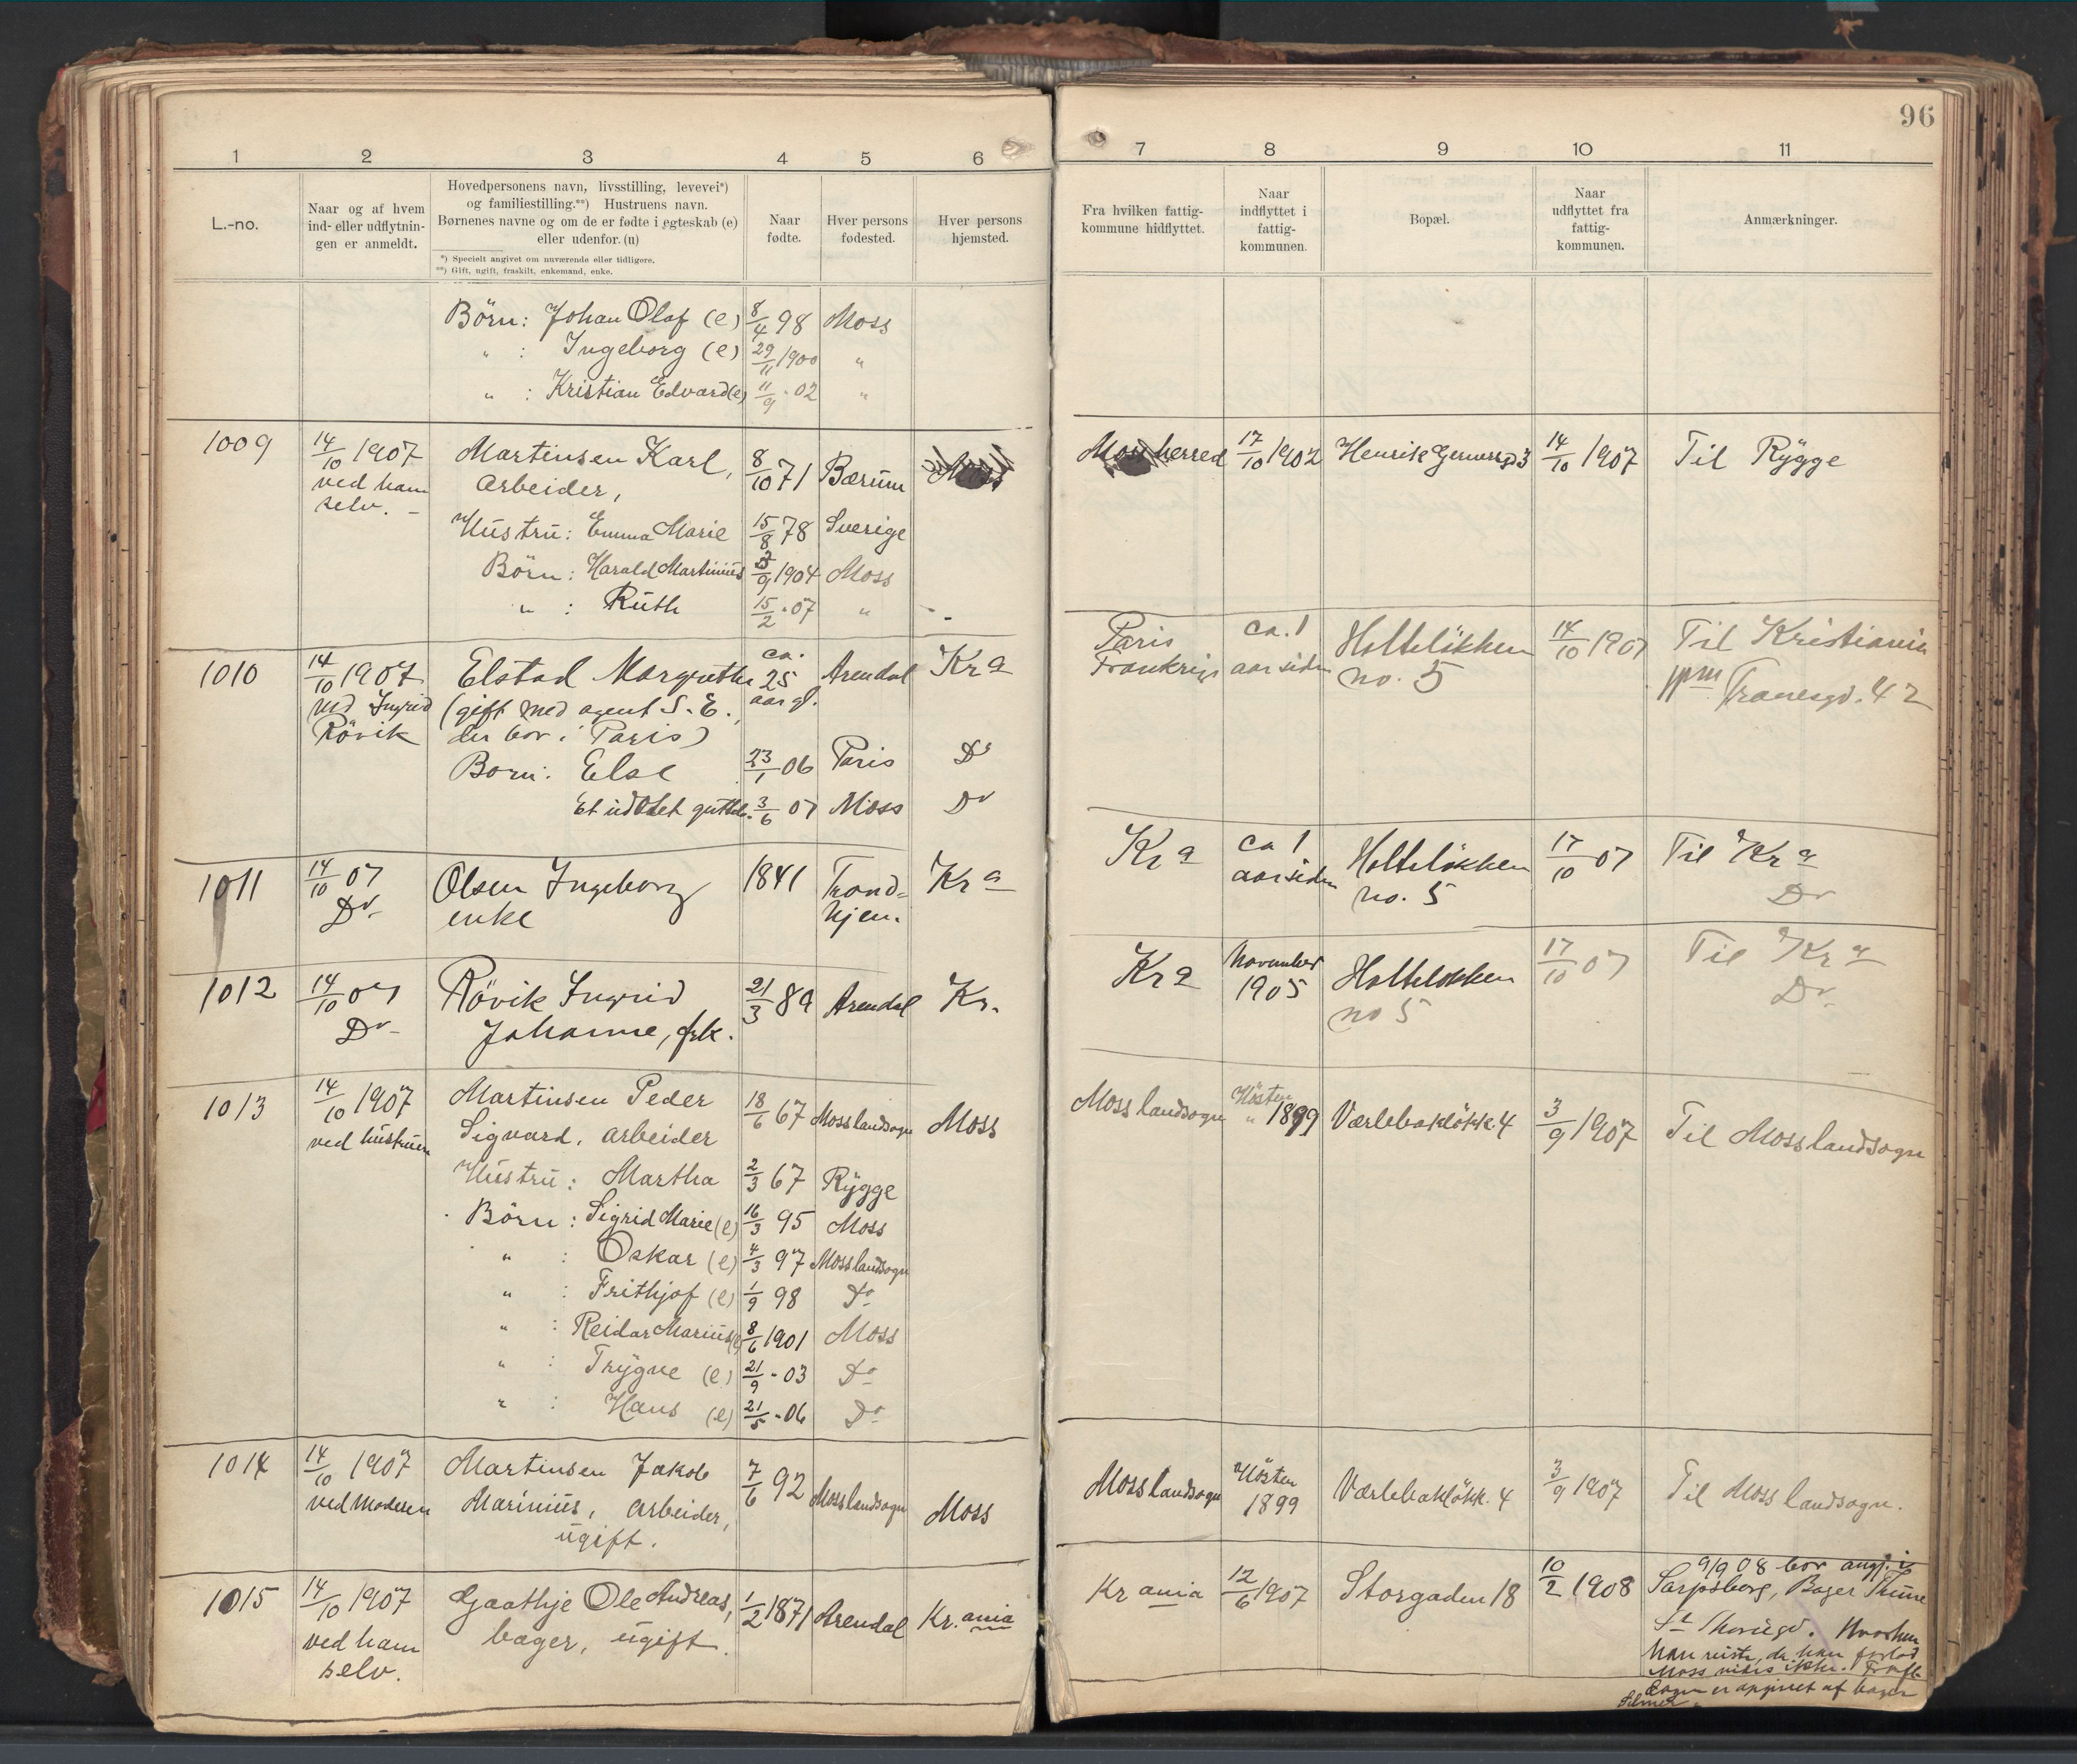 96
1 2 3 4 5 6
7 8 9 10 11
L.-no.
Naar og af hvem
ind- eller udflytnin-
gen er anmeldt.
Hovedpersonens navn, livsstilling, levevei*)
og familiestilling.**) Hustruens navn.
Børnenes navne og om de er fødte i egteskab (e)
eller udenfor. (u)
*) Specielt angivet om nuværende eller tidligere.
**) Gift, ugift, fraskilt, enkemand, enke.
Naar
fødte.
Hver persons
fødested.
Hver persons
hjemsted.
Fra hvilken fattig-
kommune hidflyttet.
Naar
indflyttet i
fattig-
kommunen.
Bopæl.
Naar
udflyttet fra
fattig-
kommunen.
Anmærkninger.
Börn: Johan Olaf (e) 8/4 98 Moss
" : Ingeborg (e) 29/11 1900 "
" : Kristian Edvard (e) 11/9 - 02 "
1009 14/10 1907 Martinsen Karl, 8/10 71 Bærum Moss Moss herred 17/10 1902 Henrik Gernersgd 3 14/10 1907 Til Rygge
ved ham arbeider,
selv. -
Hustru: Emma Marie 15/8 78 Sverige
Börn: Harald Martinius /9 1904 Moss
" : Ruth 15/2 - 07 "
1010 14/10 1907 Elstad Margrethe ca. 25 Arendal Kra Paris ca. 1 Holtelökken 14/10 1907 Til Kristiania
ved Ingrid (gift med agent S. E. aar gl. Frankrige aar siden no. 5 Tranesgd. 42
Rövik der bor i Paris)
Born: Else 23/1 06 Paris Do
Et udöbt gutteb. 3/6 07 Moss Do
1011 14/10 07 Olsen Ingeborg 1841 Trond- Kra Kra ca 1 Holtelökken 17/10 07 Til Kra
Do enke hjem. aar siden no. 5 Do
1012 14/10 07 Rövik Ingrid 21/3 89 Arendal Kr. Kra November Holtelökken 17/10 07 Til Kra
Do Johanne, frk. 1905 no 5 Do
1013 14/10 1907 Martinsen Peder 18/6 67 Moss landsogn Moss Moss landsogn Hösten 1899 Værlebakløkk. 4 3/9 1907 Til Moss landsogn
ved hustruen Sigvard, arbeider
Hustru: Martha 2/3 67 Rygge
Börn: Sigrid Marie (e) 16/3 95 Moss
" : Oskar (e) 4/3 97 Moss landsogn
" : Frithjof (e) 1/9 98 Do
" : Reidar Marius (e) 8/6 1901 Moss
" : Trygve (e) 21/9 - 03 Do
" : Hans (e) 21/5 - 06 Do
1014 14/10 1907 Martinsen Jakob 7/6 92 Moss landsogn Moss Moss landsogn Hösten 1899 Værlebakløkk. 4 3/9 1907 Til Moss landsogn.
ved moderen Marinius, arbeider,
ugift.
1015 14/10 1907 Gaathje Ole Andreas, 1/2 1871 Arendal Kr.ania Kr ania 12/6 1907 Storgaden 18 10/2 1908 9/9 08 bor angj. i
ved ham bager, ugift. Sarpsborg, Bager Thune
selv. St Mariegd. Hvorhen
han reiste, da han forlod
Moss vides ikke.
er opgivet af bager